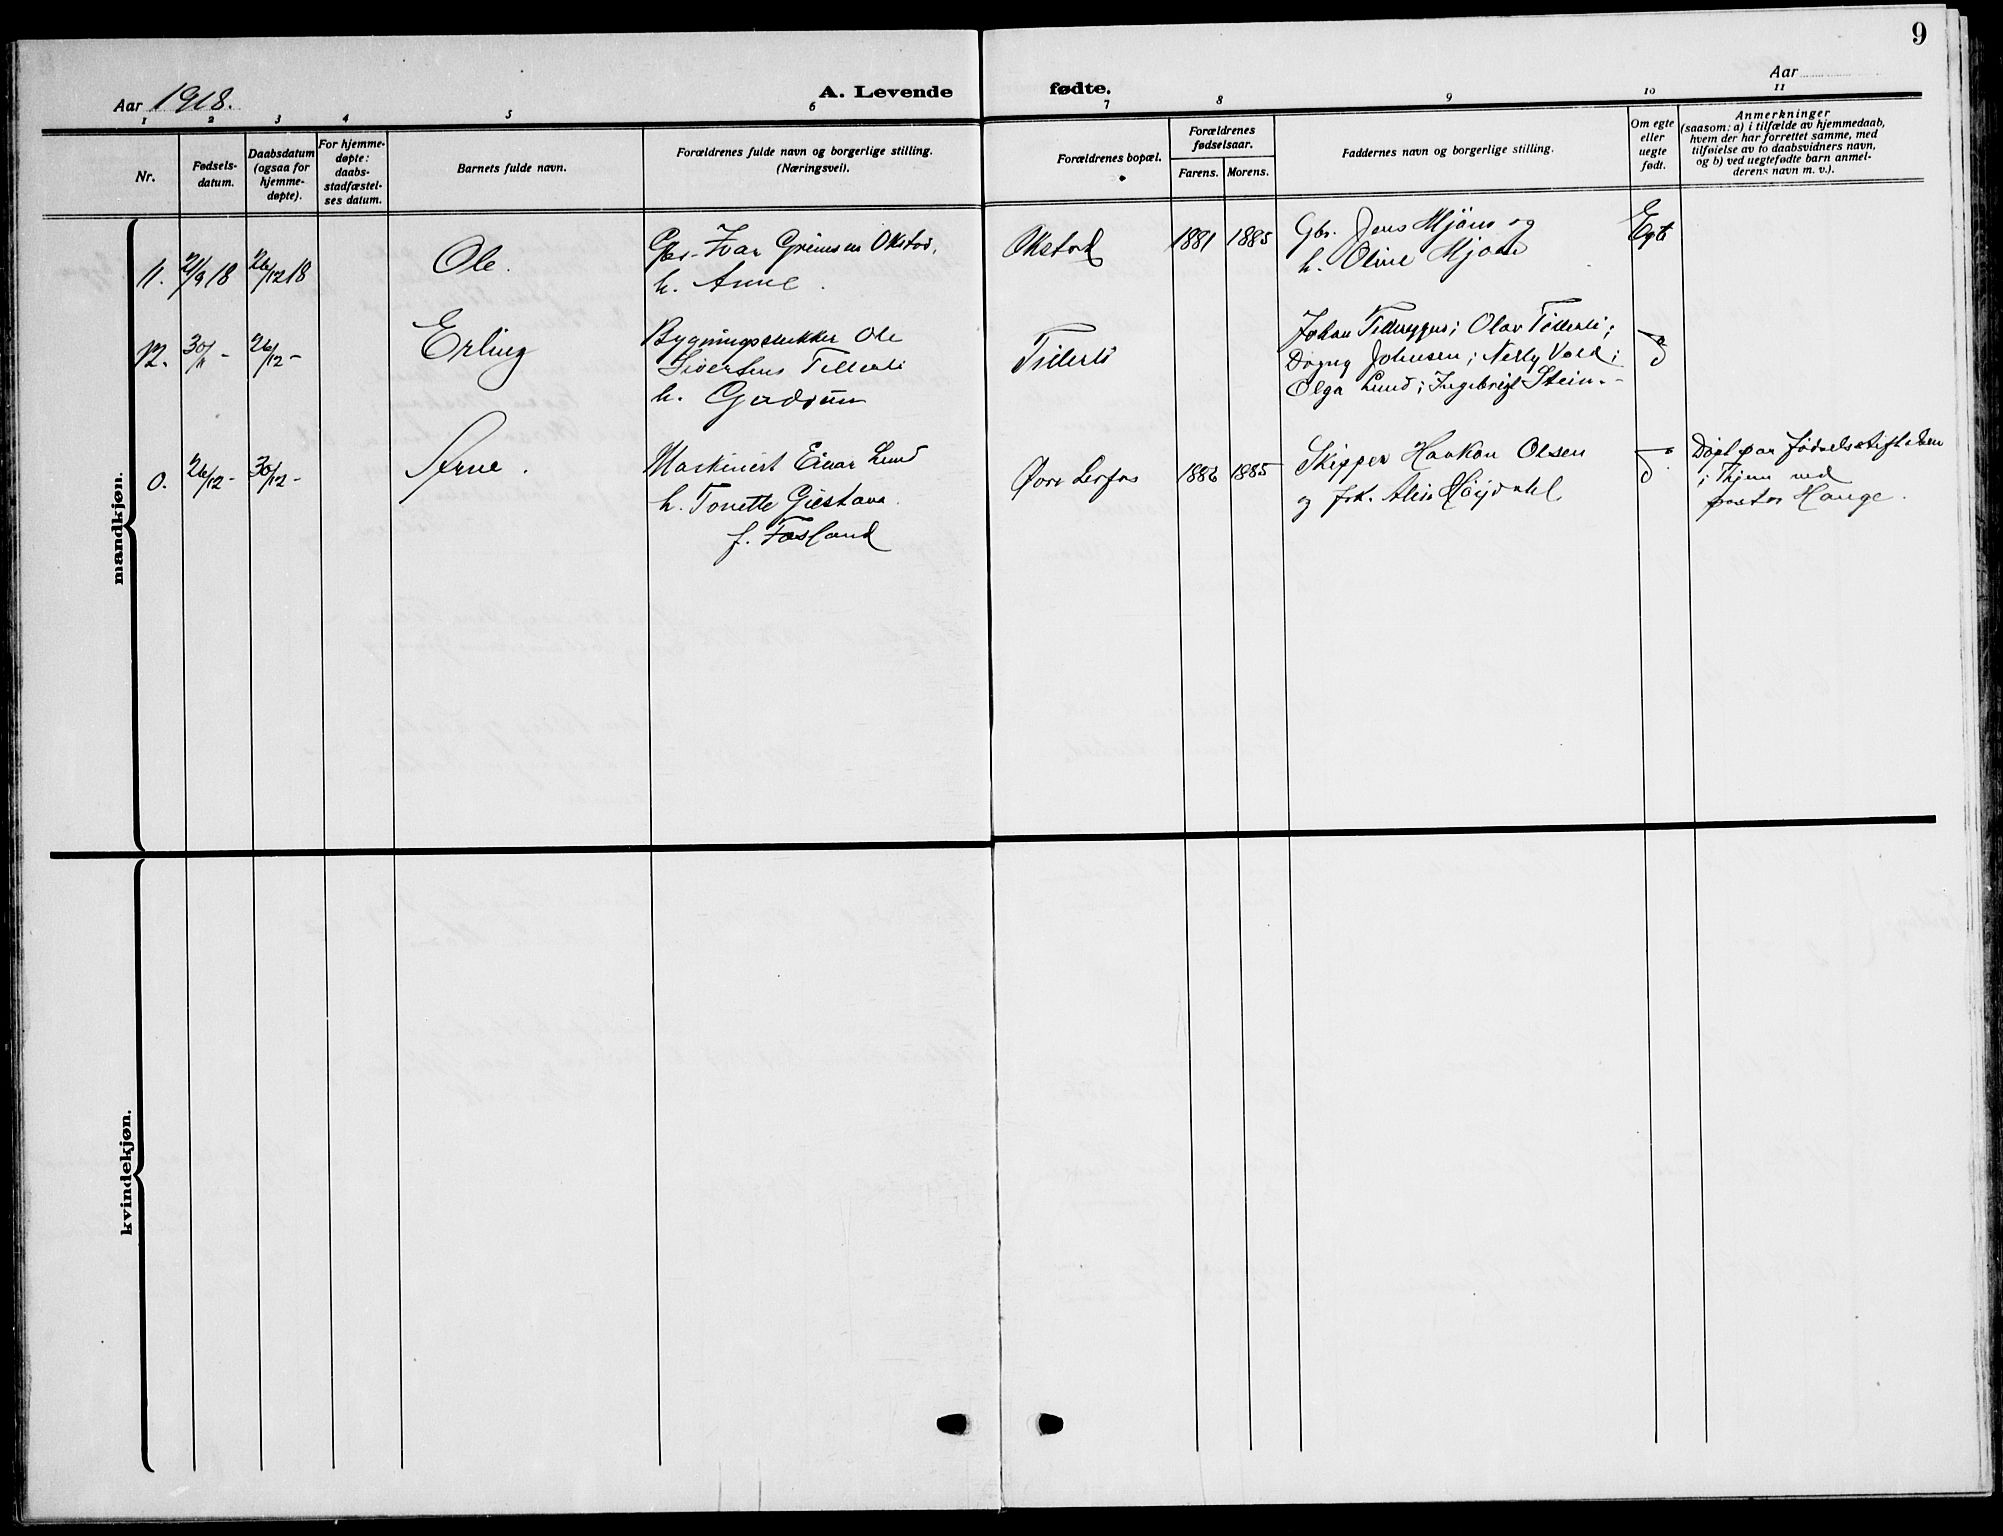 9
Aar 1918.
A. Levende fødte.
Aar
1 2 3 4 5 6 7 8 9 10 11
Nr.
Fødsels-
datum.
Daabsdatum
(ogsaa for
hjemme-
døpte).
For hjemme-
døpte:
daabs-
stadfæstel-
ses datum.
Barnets fulde navn.
Forældrenes fulde navn og borgerlige stilling.
(Næringsvei).
Forældrenes bopæl.
Forældrenes
fødselsaar.
Farens. Morens.
Faddernes navn og borgerlige stilling.
Om egte
eller
uegte
født.
Anmerkninger
(saasom: a) i tilfælde av hjemmedaab,
hvem der har forrettet samme, med
tilføielse av to daabsvidners navn,
og b) ved uegtefødte barn anmel-
derens navn m. v.).
mandkjøn.
11. 21/9 18 26/12 18
Ole.
Gbr. Ivar Grimsen Okstad,
h. Anne.
Okstad
1881 1885
Gbr. Jens Mjøen og
h. Oline Mjøen
Egte
12. 30/11 - 26/12 -
Erling
Bygningssnekker Ole
Sivertsens Tillerli
h. Gudrun
Tillerli
Johan Tillerygges; Olav Tillerli;
Dagny Johnsen; Nelly Vold;
Olga Lund; Ingebrigt Stein.
do
0. 26/12 - 30/12 -
Arne.
Maskinist Einar Lund
h. Tonette Gustava
f. Fosland
Øvre Lerfos
1886 1885
Skipper Haakon Olsen
og frk. Alis Høydahl
do
Døpt paa Fødselsstiftelsen
i Thjem ved
pastor Hauge.
kvindekjøn.